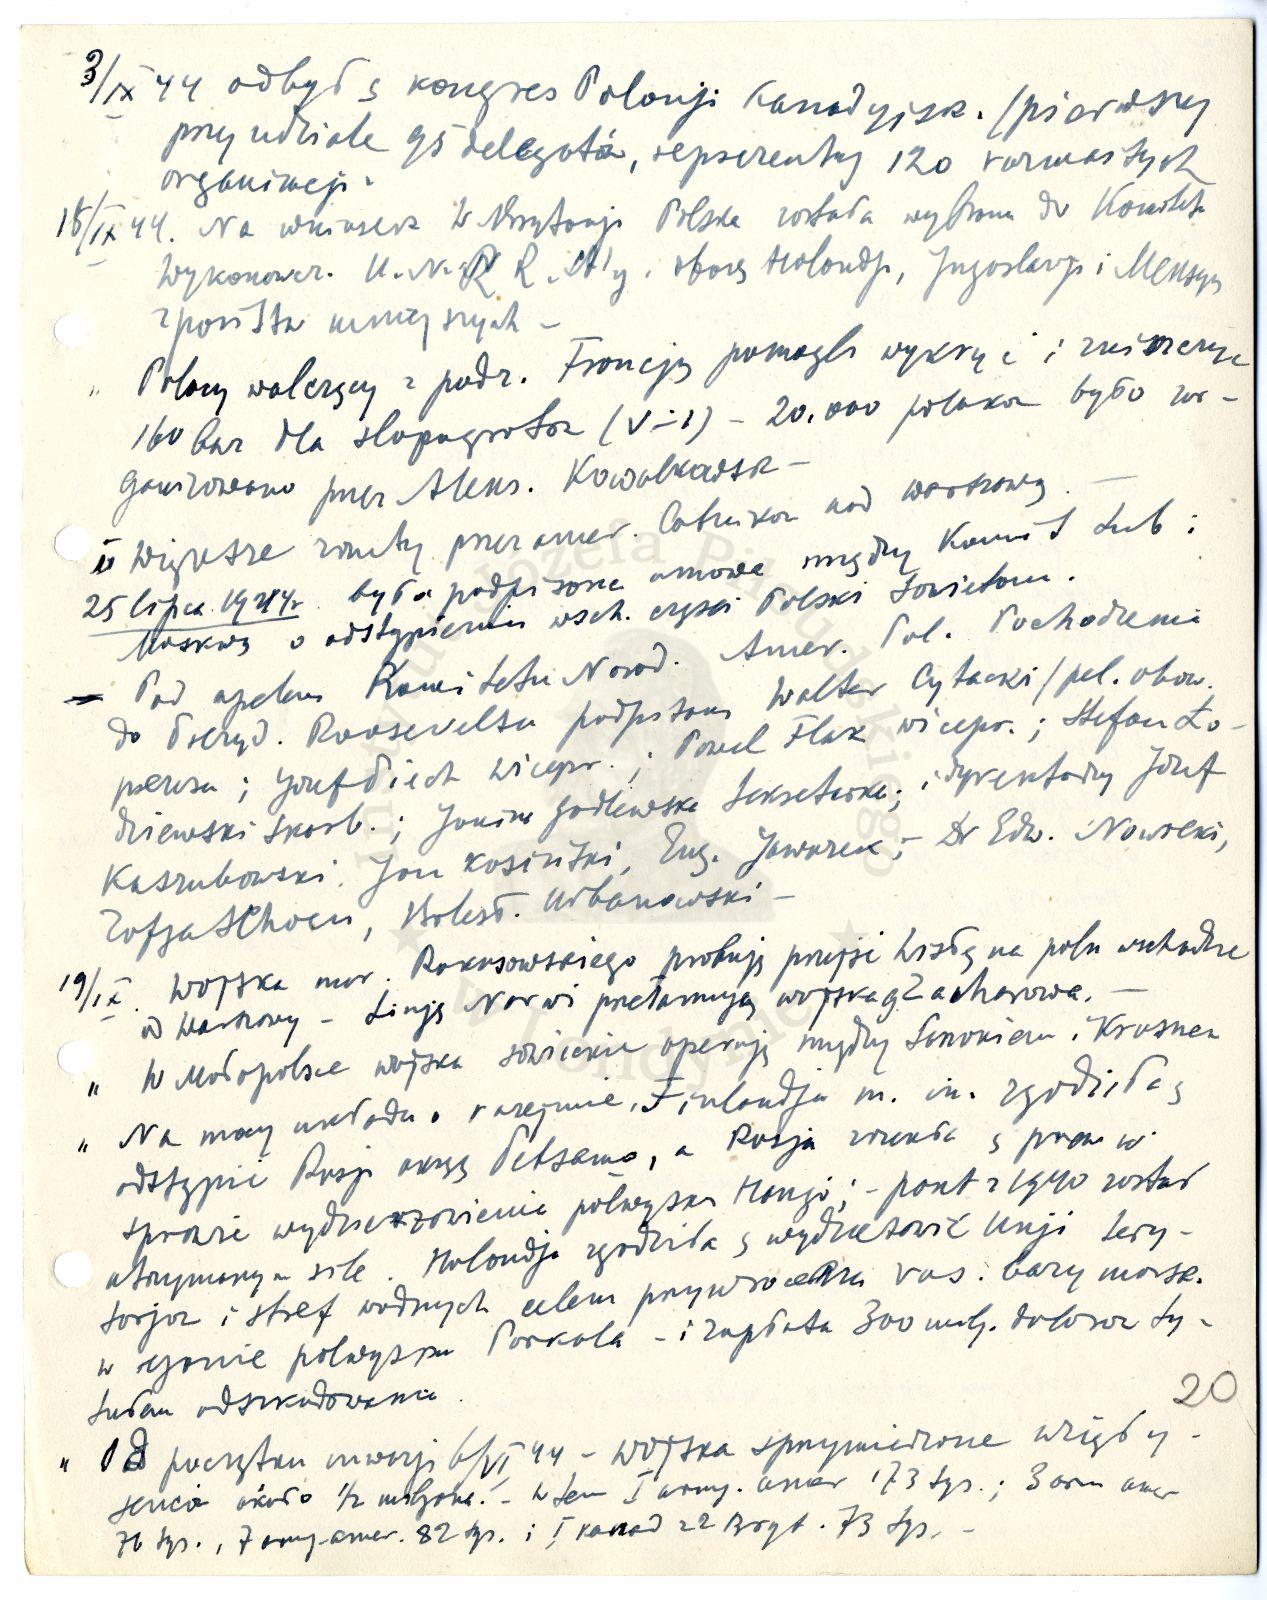 3/IX 44 odbył s kongres Polonji Kanadyjsk. /pierwszy
przy udziale 95 delegatów, reprezentuj 120 rozmaitych
organizacji.
18/IX 44. Na wniosek W Brytanji Polska została wybrana do Komitetu
Wykonawcz. U.N.R.R.A'y. obok Holandji, Jugosławji i Meksyku
z państw mniejszych –
" Polacy walczący z podz. Francją pomogli wykryć i zniszczyć
160 baz dla slopagrotów (V-1) – 20.000 polaków było zor-
ganizowano przez Aleks. Kowalkowsk –
" Większe zrzuty przez amer. Lotników nad warszawą. –
25 lipca 1944r. była podpisana umowa między Komit Lub i
Moskwą o odstąpieniu wsch. części Polski Sowietom.
– Pod apelem Komitetu Narod. Amer. Pol. Pochodzenia
do Prezyd. Roosevelta podpisani Walter Cytacki /peł. obow.
prezesa; Józef Piech wicepr.; Paweł Flak wicepr.; Stefan Ło-
dziewski skarb.; Janina Godlewska Sekretarka; i dyrektorzy Józef
Kaszubowski, Jan Kosiński, Eug. Jaworek; Dr Edw. Nowicki,
Zofja , Bolesł. Urbanowski –
19/IX. Wojska mar. Rokosowskiego próbują przejść Wisłę na połn wschodzie
od Warszawy – Linję Narwi przełamują wojska g Zacharowa. –
" W Małopolsce wojska sowieckie operują między Sanokiem i Krosnem
" Na mocy układu o rozejmie, Finlandja m. in. zgodziła s
odstąpić Rosji okręg Petsamo, a Rosja zrzekła s praw w
sprawie wydzierżawienia półwyspu Hangö; – pakt z 1940 został
utrzymany w sile. Holandja zgodziła s wydzierżawić Unji tery-
torjor i stref wodnych celem przywrócenia ros. bazy morsk.
w rejonie półwyspu Porkala – i zapłata 300 milj. dolarów ty-
tułem odszkodowania.
20
" Od początku inwazji 6/VI 44 – Wojska sprzymierzone wzięły
jeńca około 1/2 miljona. – W tem I army. amer 173 tys.; 3 arm amer
76 tys., 7 army. amer. 82 tys. i I kanad z 2 Bryt. 73 tys. –